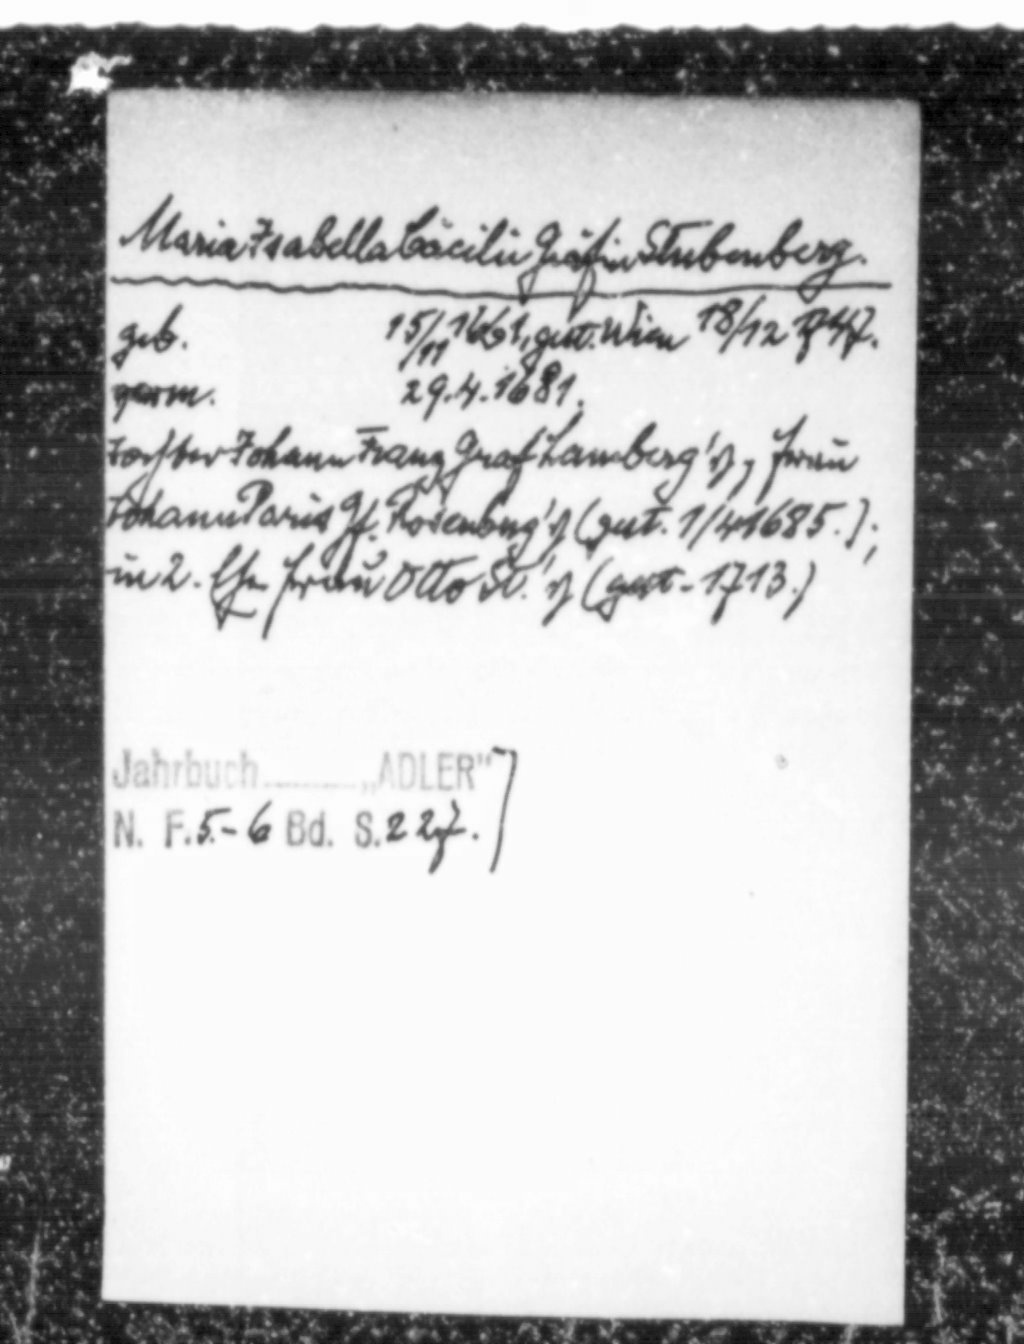 Maria Isabella Cäcilie Gräfin Stubenberg.
geb. 15/11 1661, gest. Wien 18/12 1747.
verm. 29.4.1681.
Tochter Johann Franz Graf Lamberg's, Frau
Johann Paris Gf. Rosenberg's (gest. 1/4 1685.);
in 2. Ehe Frau Otto St.'s (gest. 1713.)
Jahrbuch "ADLER"
N. F. 5.-6 Bd. S. 227.